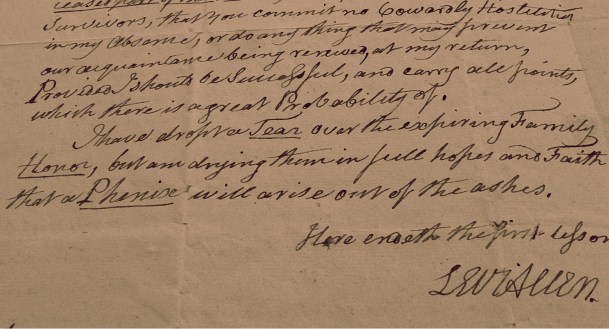 ceased part of the
Survivors, that you commit no Cowardly Hostilities
in my Absence, or do any thing that may prevent
our acquaintance being renewed, at my return,
Provided I should be Successful, and carry all points,
which there is a great Probability of.
I have dropt a Tear over the expiring Family
Honor, but am drying them in full hopes and Faith
that a Phenix will arise out of the ashes.
Here endeth the first lesson
LEVI ALLEN.